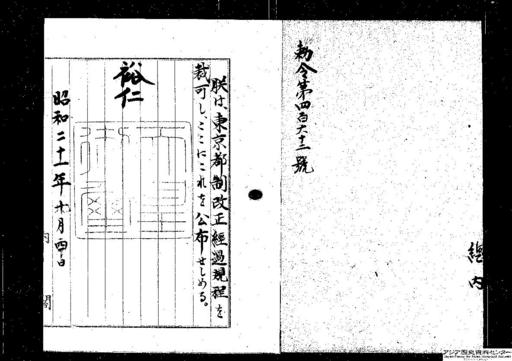 勅令第四百六十三號
總
内
朕は、東京都制改正經過規程を
裁可し、ここにこれを公布せしめる。
裕仁
昭和二十一年十月四日
内閣
アジア歴史資料センター